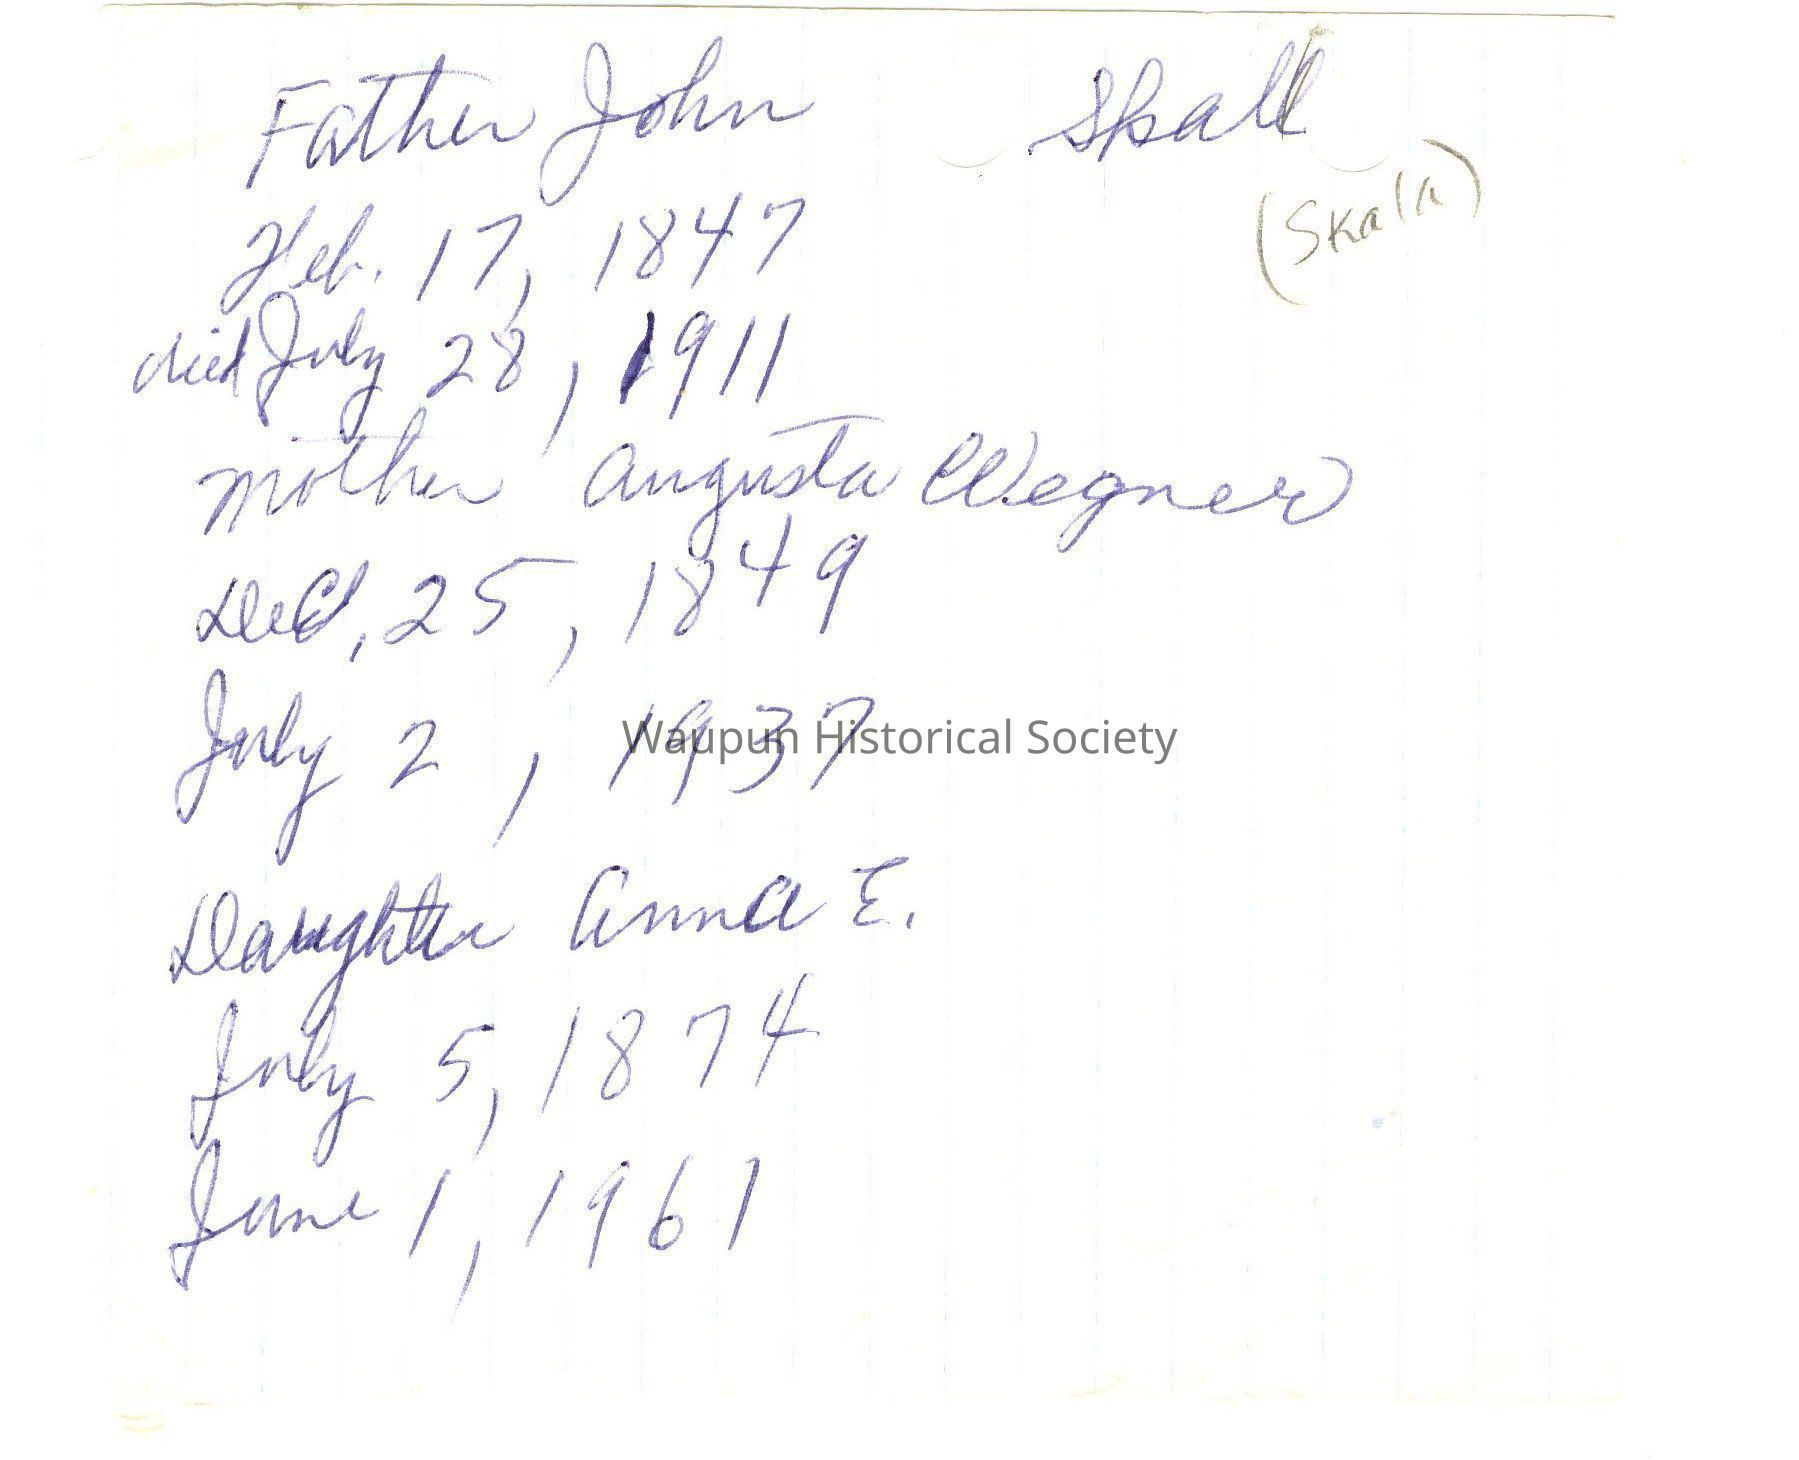 Father John Skall
(Skala)
Feb. 17, 1847
died July 28, 1911
Mother Augusta Wegner
Dec, 25, 1849
July 2, 1937
Waupun Historical Society
Daughter Anna E.
July 5, 1874
June 1, 1961